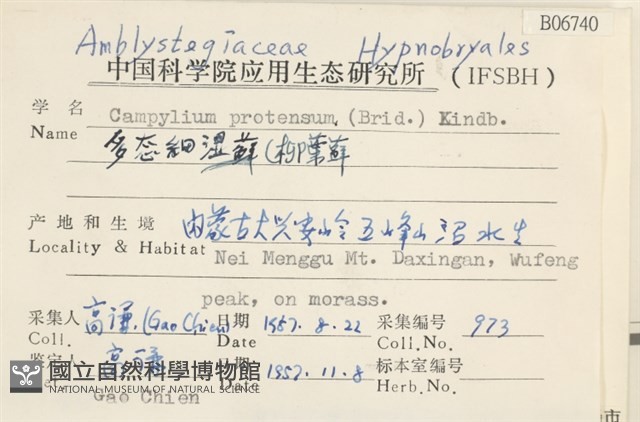 B06740
Amblystegiaceae Hypnobryales
中国科学院应用生态研究所 (IFSBH)
学名 Campylium protensum (Brid.) Kindb.
Name
多态细湿藓 (柳葉藓
产地和生境 内蒙古大兴安岭五峰山沼水生
Locality & Habitat Nei Menggu Mt. Daxingan, Wufeng
peak, on morass.
采集人 高谦 (Gao Chien) 日期 1957.8.22 采集编号 973
Coll. Date Coll.No.
鉴定人 高谦 日期 1957.11.8 标本室编号
Date Herb.No.
國立自然科學博物館
NATIONAL MUSEUM OF NATURAL SCIENCE
Gao Chien
市